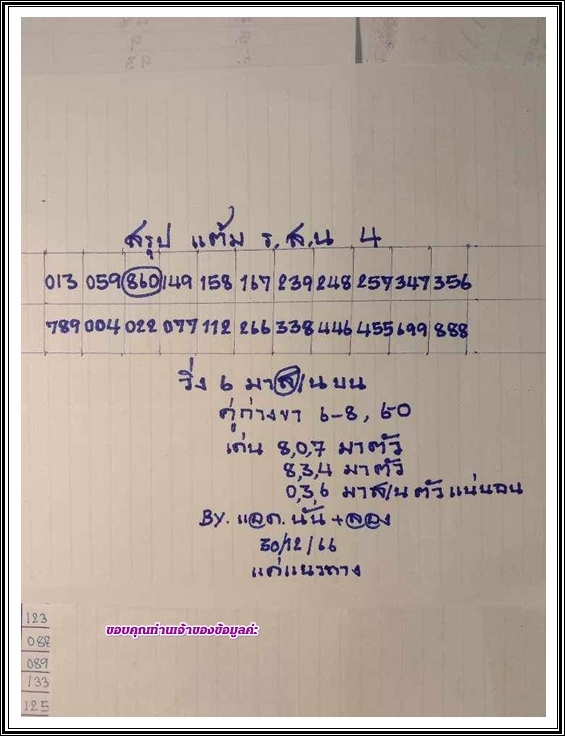 สรุป แต้ม ร.ส.น 4
013 059 860 149 158 167 239 248 257 347 356
789 004 022 077 112 266 338 446 455 699 888
วิ่ง 6 มา ส/น บน
คู่ถ่างขา 6-8, 60
เด่น 8,0,7 มาตัว
8,3,4 มาตัว
0,3,6 มา ส/น ตัวแน่นอน
By. แอด. นั้น + ลอง
30/12/66
แค่แนวทาง
123
088
089
133
125
ขอบคุณท่านเจ้าของข้อมูลค่ะ